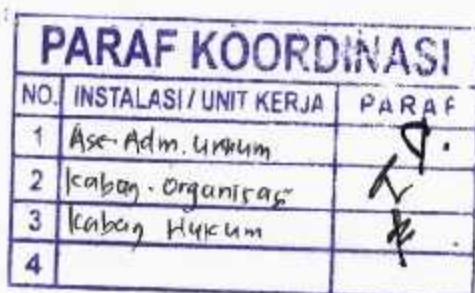 PARAF KOORDINASI
NO. INSTALASI / UNIT KERJA PARAF
1 Ase. Adm. umum
2 kabag. Organisasi
3 kabag Hukum
4